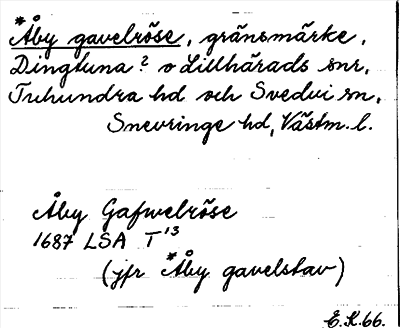 *Åby gavelröse, gränsmärke,
Dingtuna? o Lillhärads snr,
Tuhundra hd och Svedvi sn,
Snevringe hd, Västm. l.
Åby Gafwelröse
1687 LSA T¹³
(jfr *Åby gavelstav)
E.K.66.